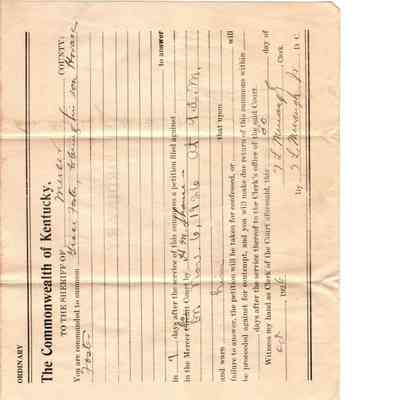 ORDINARY
The Commonwealth of Kentucky.
TO THE SHERIFF OF Mercer COUNTY:
You are commanded to summon Grover Foster to bring his son Horace
Foster
to answer
in 7 days after the service of this summons a petition filed against
in the Mercer Circuit Court by
on Nov. 6, 1926 at 9 a.m.
and warn him that upon will
failure to answer, the petition will be taken for confessed, or
be proceeded against for contempt, and you will make due return of this summons within
days after the service thereof to the Clerk's office of the said Court.
Witness my hand as Clerk of the Court aforesaid, this 30 day of
Oct 1926. Clerk
By D. C.